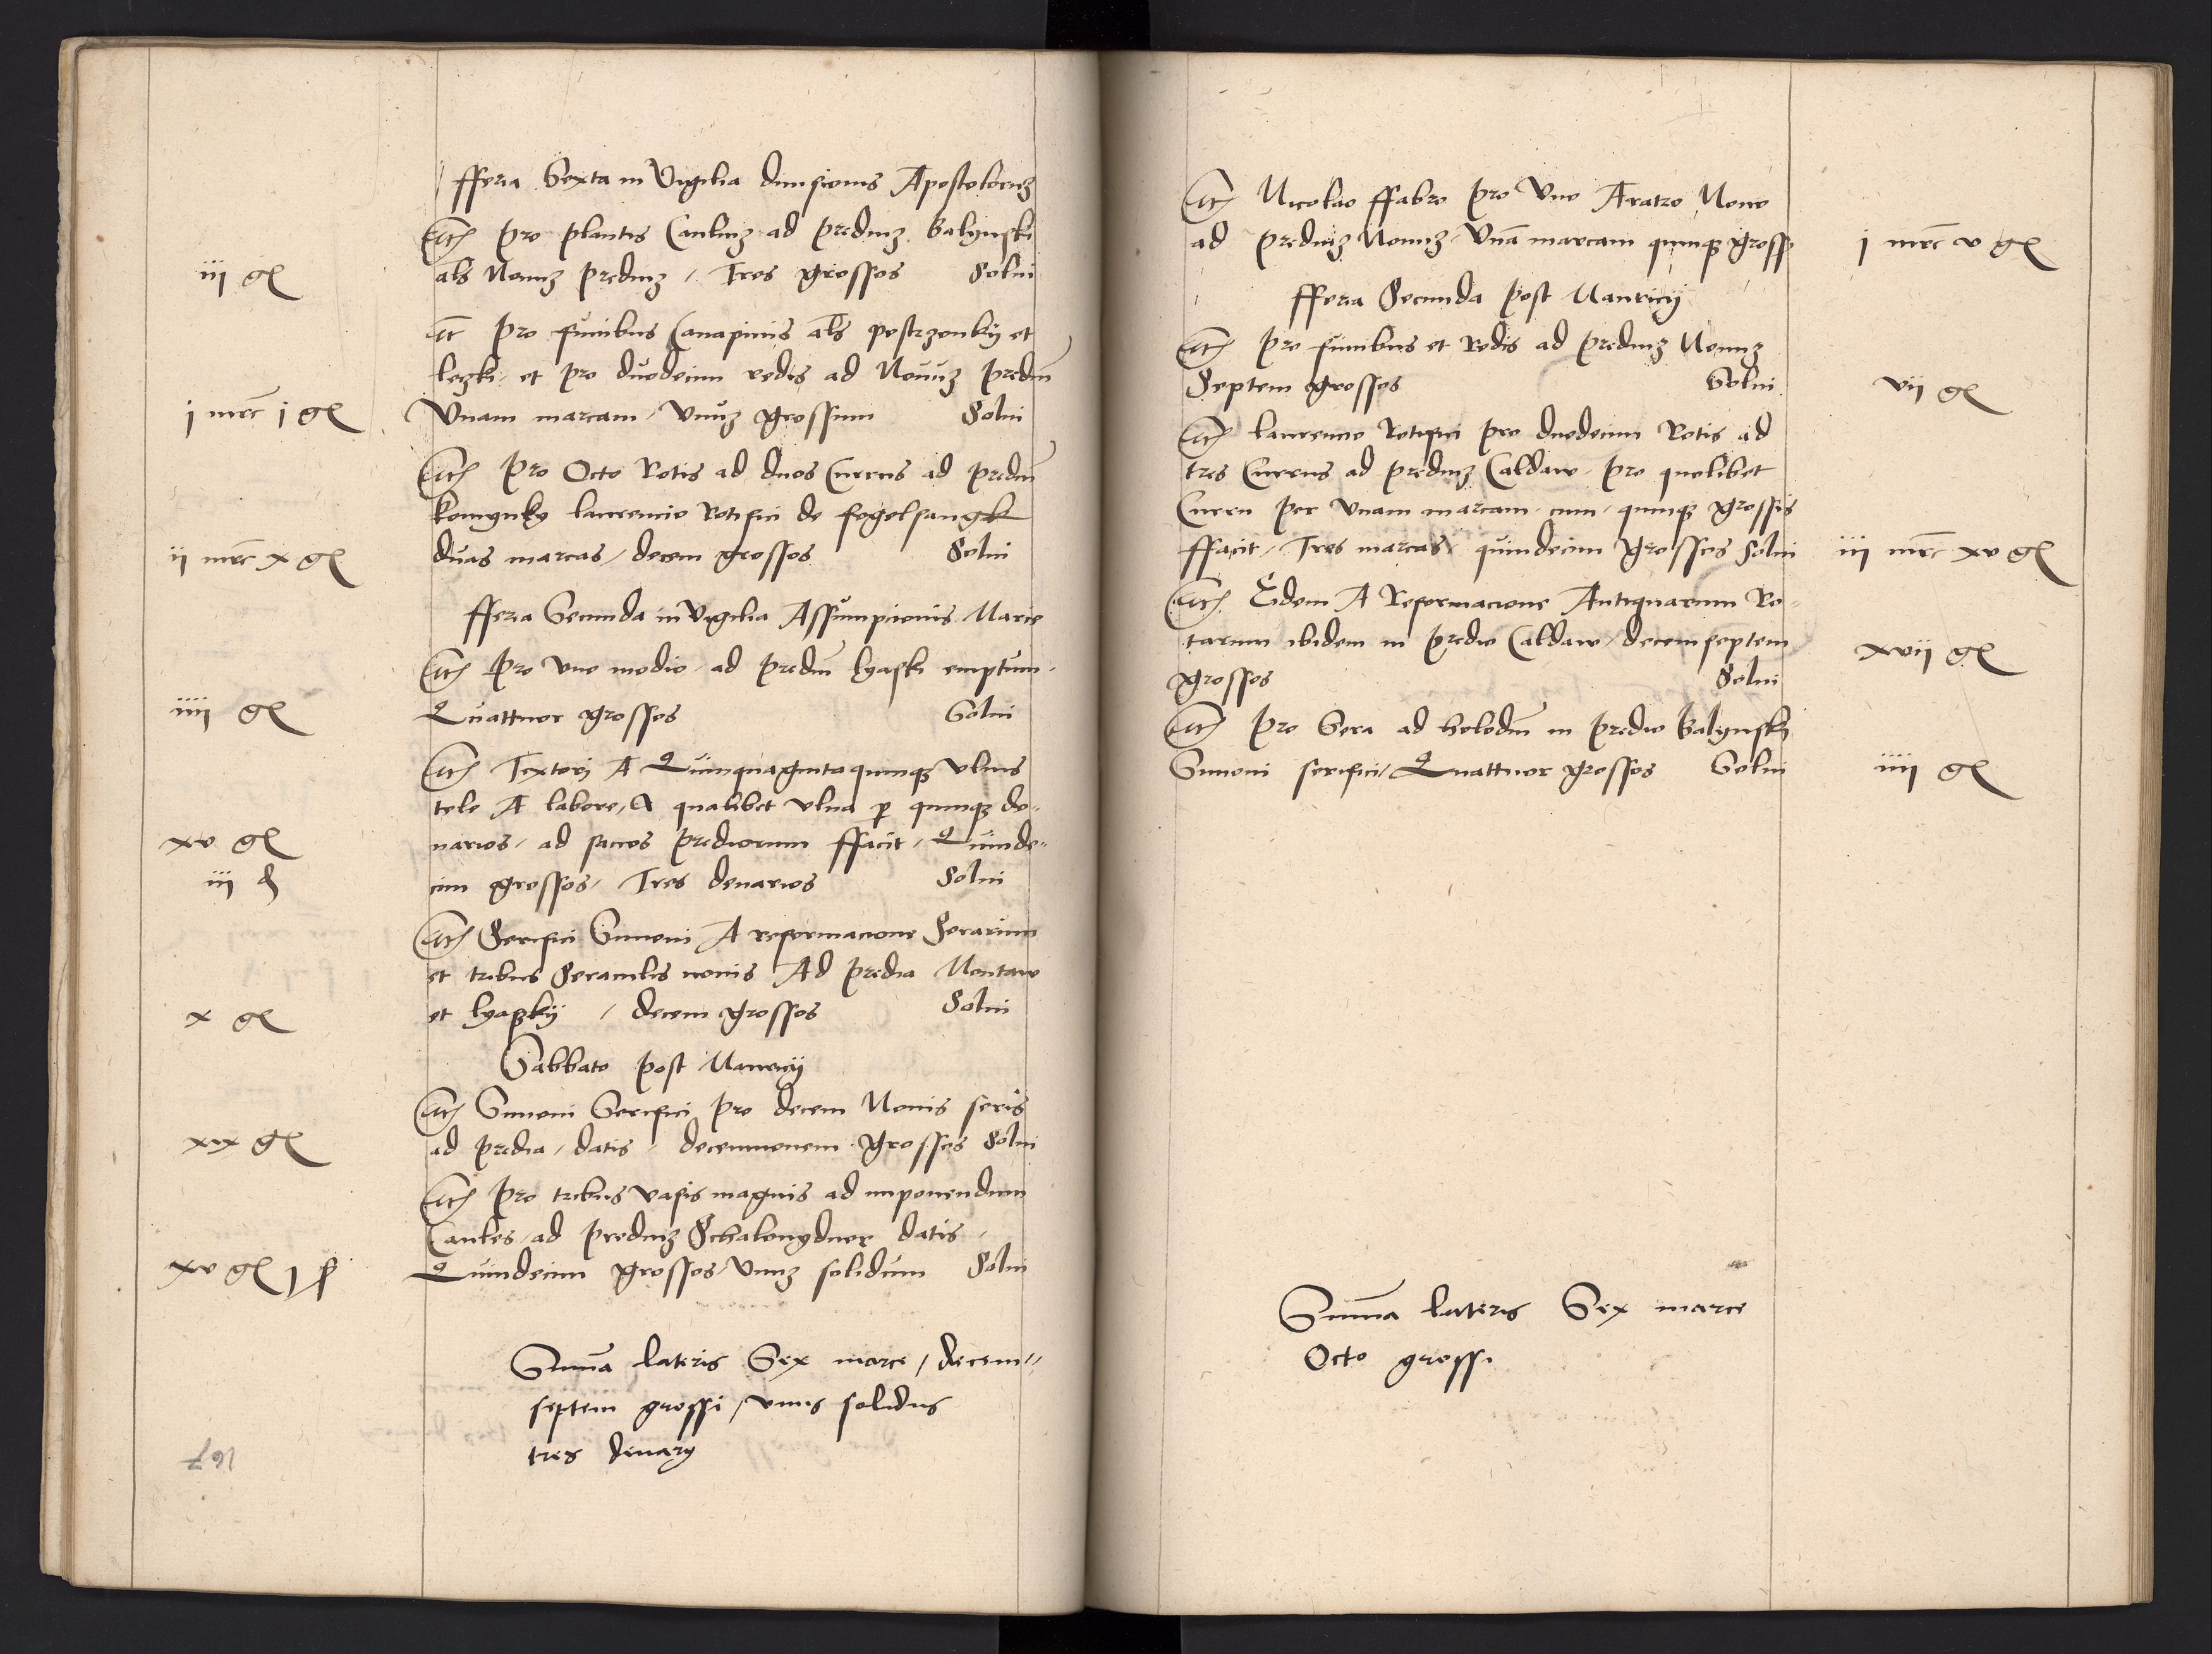 ffera Sexta in Vigilia divisionis Apostolorum
Itm pro plantis Caulium ad prediuz Balynski
iii gl als Novuz prediuz / Tres grossos Solui
It pro funibus Canapinis als postrzonky et
leczki et pro duodecim redis ad Novuz prediu
j mrc j gl Vnam marcam / Vnuz grossum Solui
Itm pro Octo Rotis ad duos Currus ad prediu
komynky laurencio Rotifici de fogelsangk
ii mrc x gl duas marcas / decem grossos Solui
ffera Secunda in Vigilia Assumpcionis Marie
Itm pro vno modio ad prediu lyaski emptum
iiii gl Quattuor grossos Solui
Itm Textori A Quinquaginta quinqz vlnis
tele A labore / A qualibet vlna p quinqz de-
xv gl narios / ad saccos prediorum ffacit / Quinde-
iii d cim grossos / Tres denarios Solui
Itm Serifici Simoni A reformacione Serarum
et tribus Seraculis novis Ad predia Montaw
x gl et lyaszkij / decem grossos Solui
Sabbato post Mauricij
Itm Simoni Serifici pro decem Novis seris
xix gl ad predia / datis / decemnovem grossos Solui
Itm pro tribus vasis magnis ad imponendum
Caules / ad prediuz Schalengdner datis /
xv gl j ß Quindecim grossos / Vnuz solidum Solui
Suma lateris Sex marce / decem-
septem grossi / vnus solidus
tres denarij
167
Itm Nicolao ffabro pro Vno Aratro Novo
ad prediuz Novuz / Vna marcam quinqz gross j mrc v gl
ffera Secunda post Mauricij
Itm pro funibus et Redis ad prediuz Novuz
Septem grossos Solui vii gl
Itm laurencio Rotifici pro duodecim Rotis ad
tres Currus ad prediuz Caldaw / pro quolibet
Curru per vnam marcam / cum / quinqz grossis
ffacit / Tres marcas / quindecim grossos Solui iii mrc xv gl
Itm Eidem A Reformacione Antiquarum Ro-
tarum ibidem in predio Caldaw / decemseptem xvii gl
grossos Solui
Itm pro Sera ad holodiu in predio Balynski
Simoni serifici / Quattuor grossos Solui iiii gl
Suma lateris Sex marce
Octo grossi